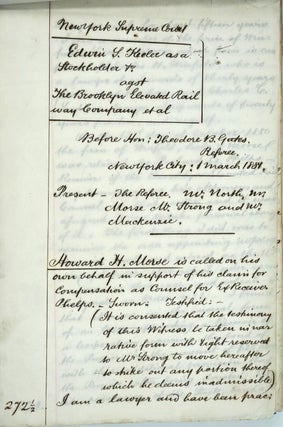 New York Supreme Court
Edwin S. Keeler as a
Stockholder &c.
agst
The Brooklyn Elevated Rail
way Company et al
Before Hon: Theodore B. Gates,
Referee.
New York City: 1 March 1881.
Present - The Referee, Mr. North, Mr.
Morse Mr. Strong and Mr.
Mackenzie.
Howard H. Morse is called on his
own behalf in support of his claim for
Compensation as Counsel for Ex Receiver
Phelps. - Sworn: Testified: -
(It is consented that the testimony
of this Witness be taken in nar
rative form with right reserved
to Mr Strong to move hereafter
to strike out any portion thereof
which he deems inadmissible)
272 1/2
I am a lawyer and have been prac: